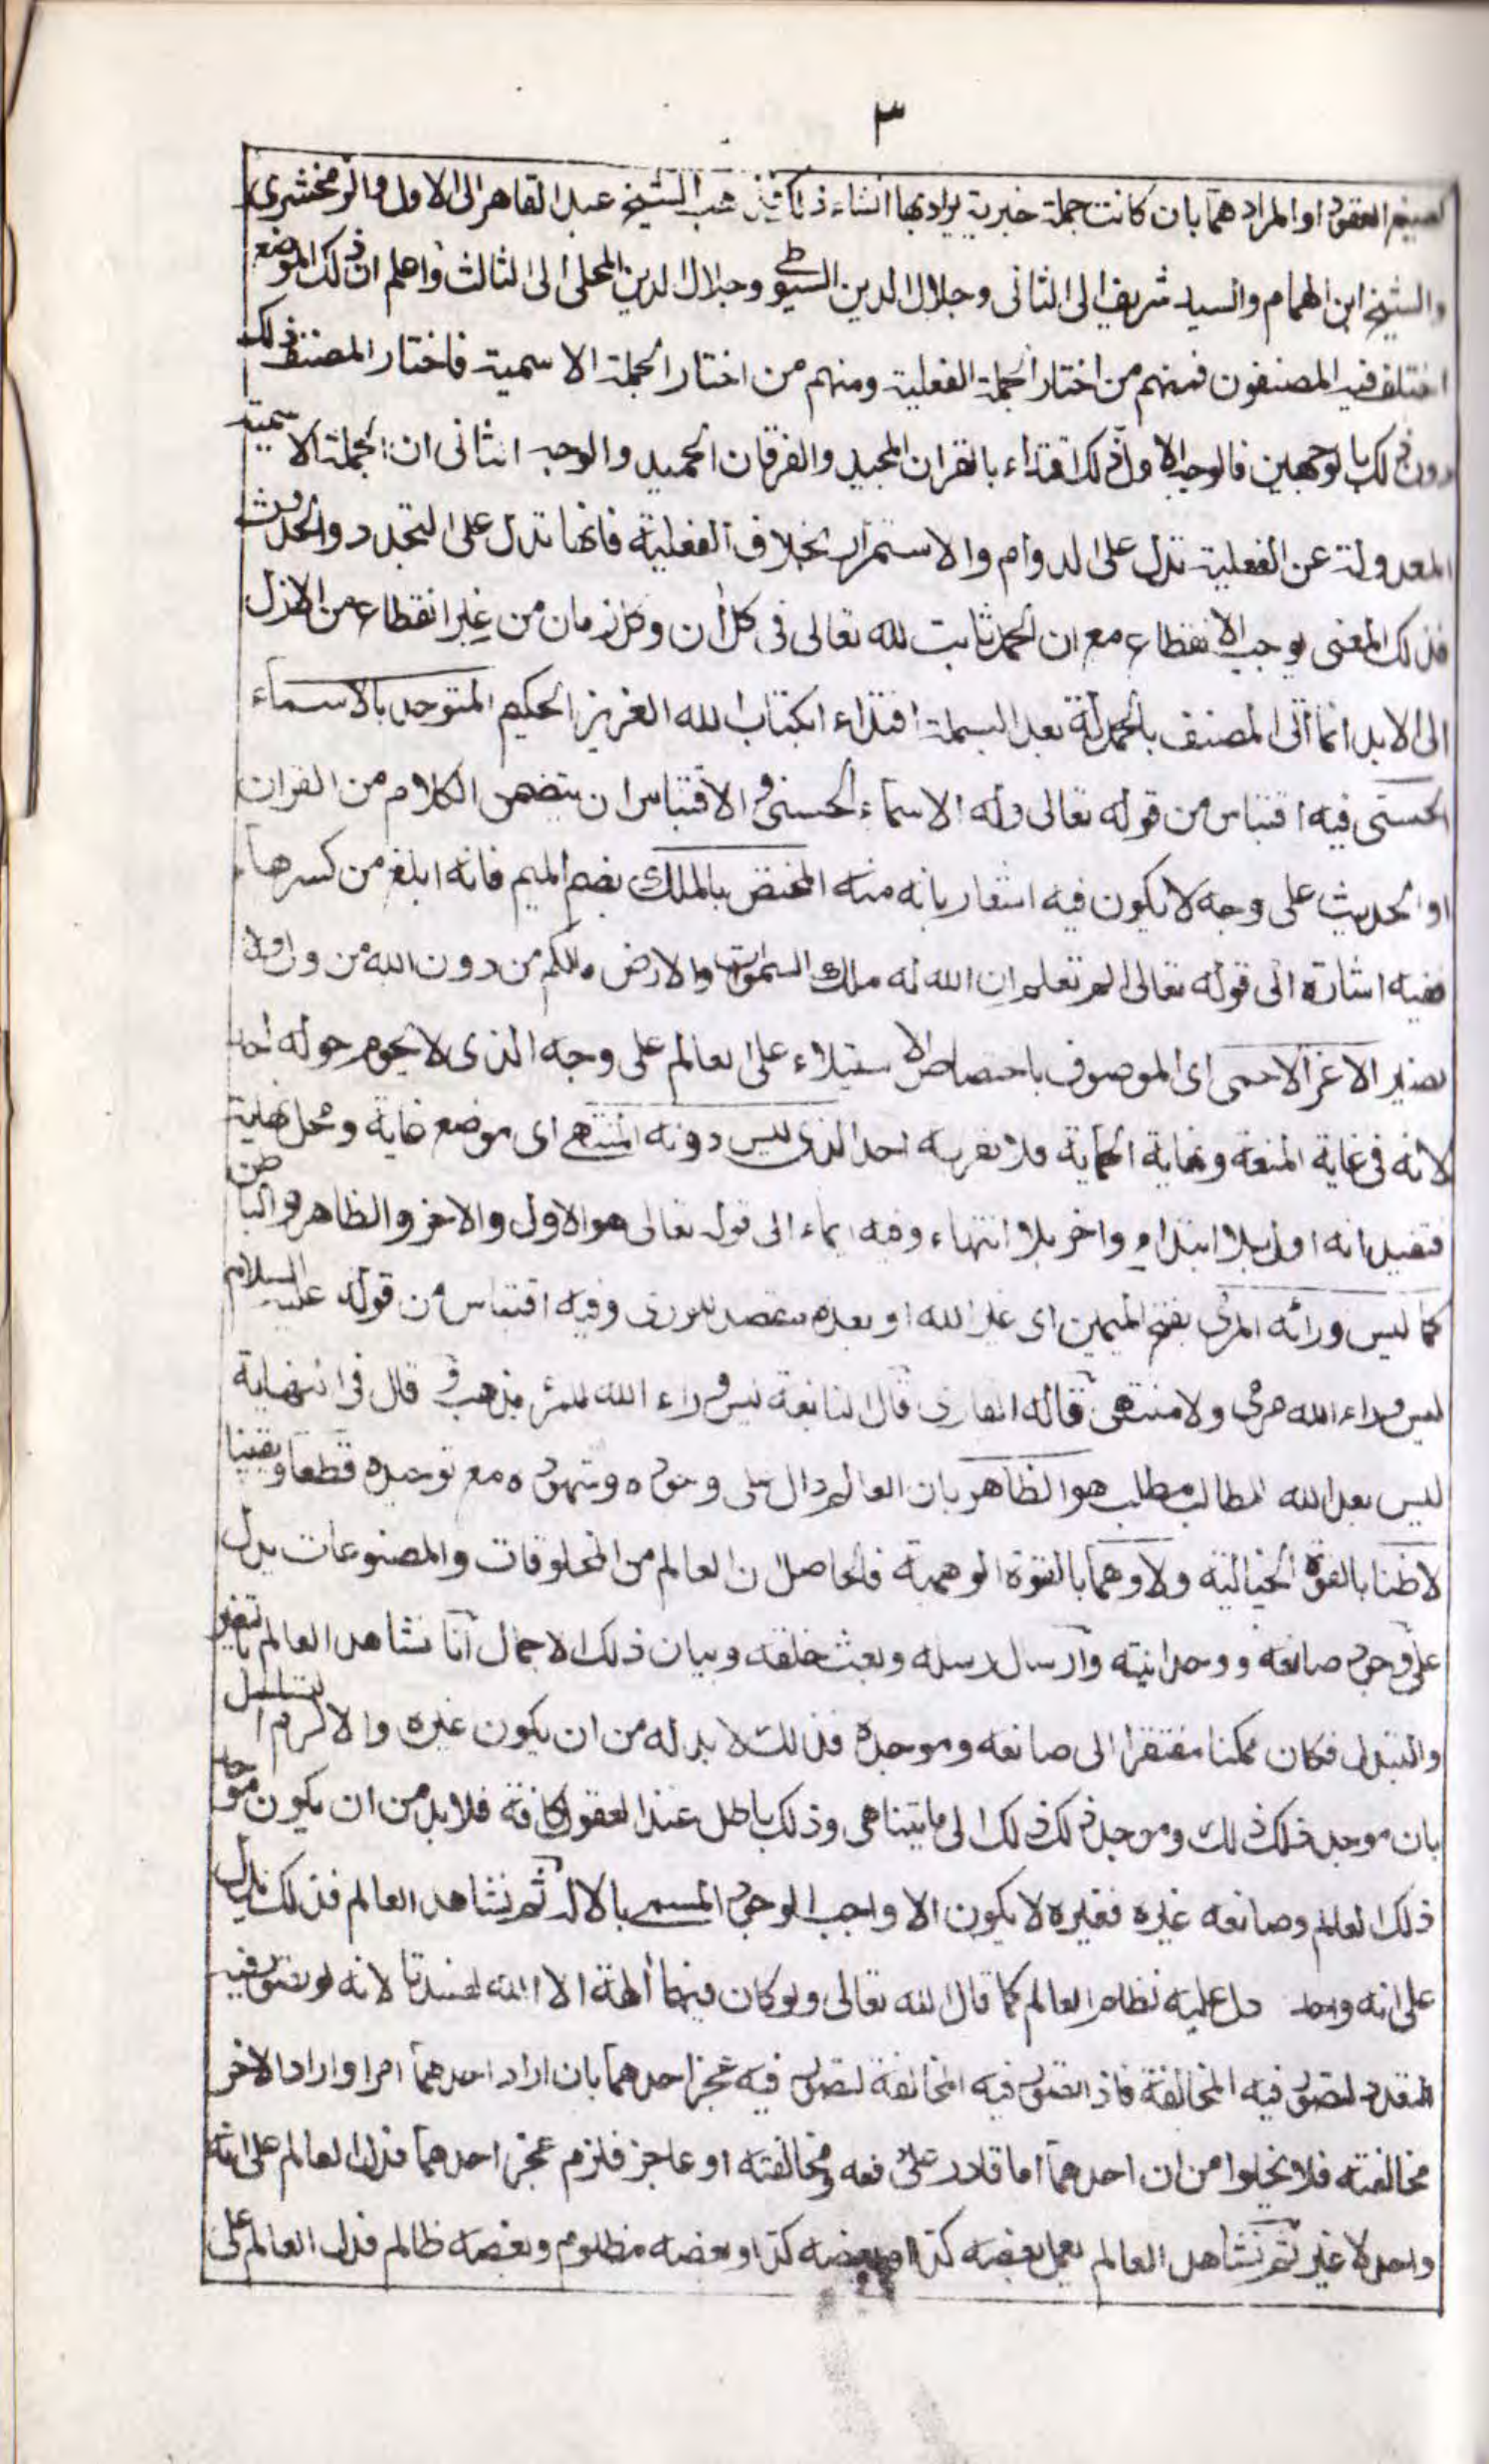 ٣
لصيغ العقود او المراد هما بان كانت جملة خبرية يراد بها انشاء ذلك فذهب الشيخ عبد القاهر الى الاول والزمخشرى
والشيخ ابن الهمام والسيد شريف الى الثانى وجلال الدين السيوطى وجلال الدين المحلى الى الثالث واعلم ان ذلك الموضع
اختلف فيه المصنفون فمنهم من اختار الجملة الفعلية ومنهم من اختار الجملة الاسمية فاختار المصنف ذلك
دون ذلك بالوجهين فالوجه الاول ذلك اقتداء بالقران المجيد والفرقان الحميد والوجه الثانى ان الجملة الاسمية
المعدولة عن الفعلية تدل على الدوام والاستمرار بخلاف الفعلية فانها تدل على التجدد والحدوث
فذلك المعنى يوجب الانقطاع مع ان الحمد ثابت لله تعالى فى كل أن وكل زمان من غير انقطاع من الازل
الى الابد انما أتى المصنف بالحمدلة بعد البسملة اقتداء بكتاب الله العزيز الحكيم المتوحد بالاسماء
الحسنى فيه اقتباس من قوله تعالى وله الاسماء الحسنى والاقتباس ان يتضمن الكلام من القران
او الحديث على وجه لا يكون فيه اشعار بانه منه المختص بالملك بضم الميم فانه ابلغ من كسرها
ففيه اشارة الى قوله تعالى الم تعلم ان الله له ملك السموات والارض ومالكم من دون الله من ولى ولا
نصير الاعز الاحمى اى الموصوف باختصاص الاستيلاء على العالم على وجه الذى لا يحوم حوله احد
لانه فى غاية المنعة ونهاية الحماية فلا تقربه احد الذى ليس دونه المنتهى اى موضع غاية ومحل نهاية
فتفيد انه اول بلا ابتداء واخر بلا انتهاء وفيه ايماء الى قوله تعالى هو الاول والاخر والظاهر والباطن
كما ليس ورائه المرمى بفتح الميمين اى غير الله او بعده مقصد للورى وفيه اقتباس من قوله عليه السلام
ليس وراء الله مرمى ولا منتهى قاله القارى قال النابغة ليس وراء الله للمرء مذهب وقال فى النهاية
ليس بعد الله لمطالب مطلب هو الظاهر بان العالم دال على وجوده وشهوده مع توحيده قطعا ويقينا
لا ظنا بالقوة الخيالية ولا وهما بالقوة الوهمية فالحاصل ان العالم من المخلوقات والمصنوعات يدل
على وجود صانعه ووحدانيته وارسال رسله وبعث خلقه وبيان ذلك الاجمال أنا نشاهد العالم بالتغير
والتبدل فكان ممكنا مفتقرا الى صانعه وموجده فذلك لا بد له من ان يكون غيره والا لزم التسلسل
بان موجد ذلك ذلك وموجد ذلك ذلك الى ما يتناهى وذلك باطل عند العقول كافة فلا بد من ان يكون موجد
ذلك العالم وصانعه غيره فغيره لا يكون الا واجب الوجود المسمى بالاله ثم نشاهد العالم فذلك يدل
على انه واحد دل عليه نظام العالم كما قال الله تعالى ولو كان فيهما ألهة الا الله لفسدتا لانه لو تصور فيه
التعدد لتصور فيه المخالفة فاذا تصور فيه المخالفة لتصور فيه عجز احدهما بان اراد احدهما امرا واراد الاخر
مخالفته فلا يخلوا من ان احدهما اما قادر على دفعه ومخالفته او عاجز فلزم عجز احدهما فدل العالم على انه
واحد لا غير ثم نشاهد العالم يعمل بعضه كذا وبعضه كذا وبعضه مظلوم وبعضه ظالم فدل العالم على